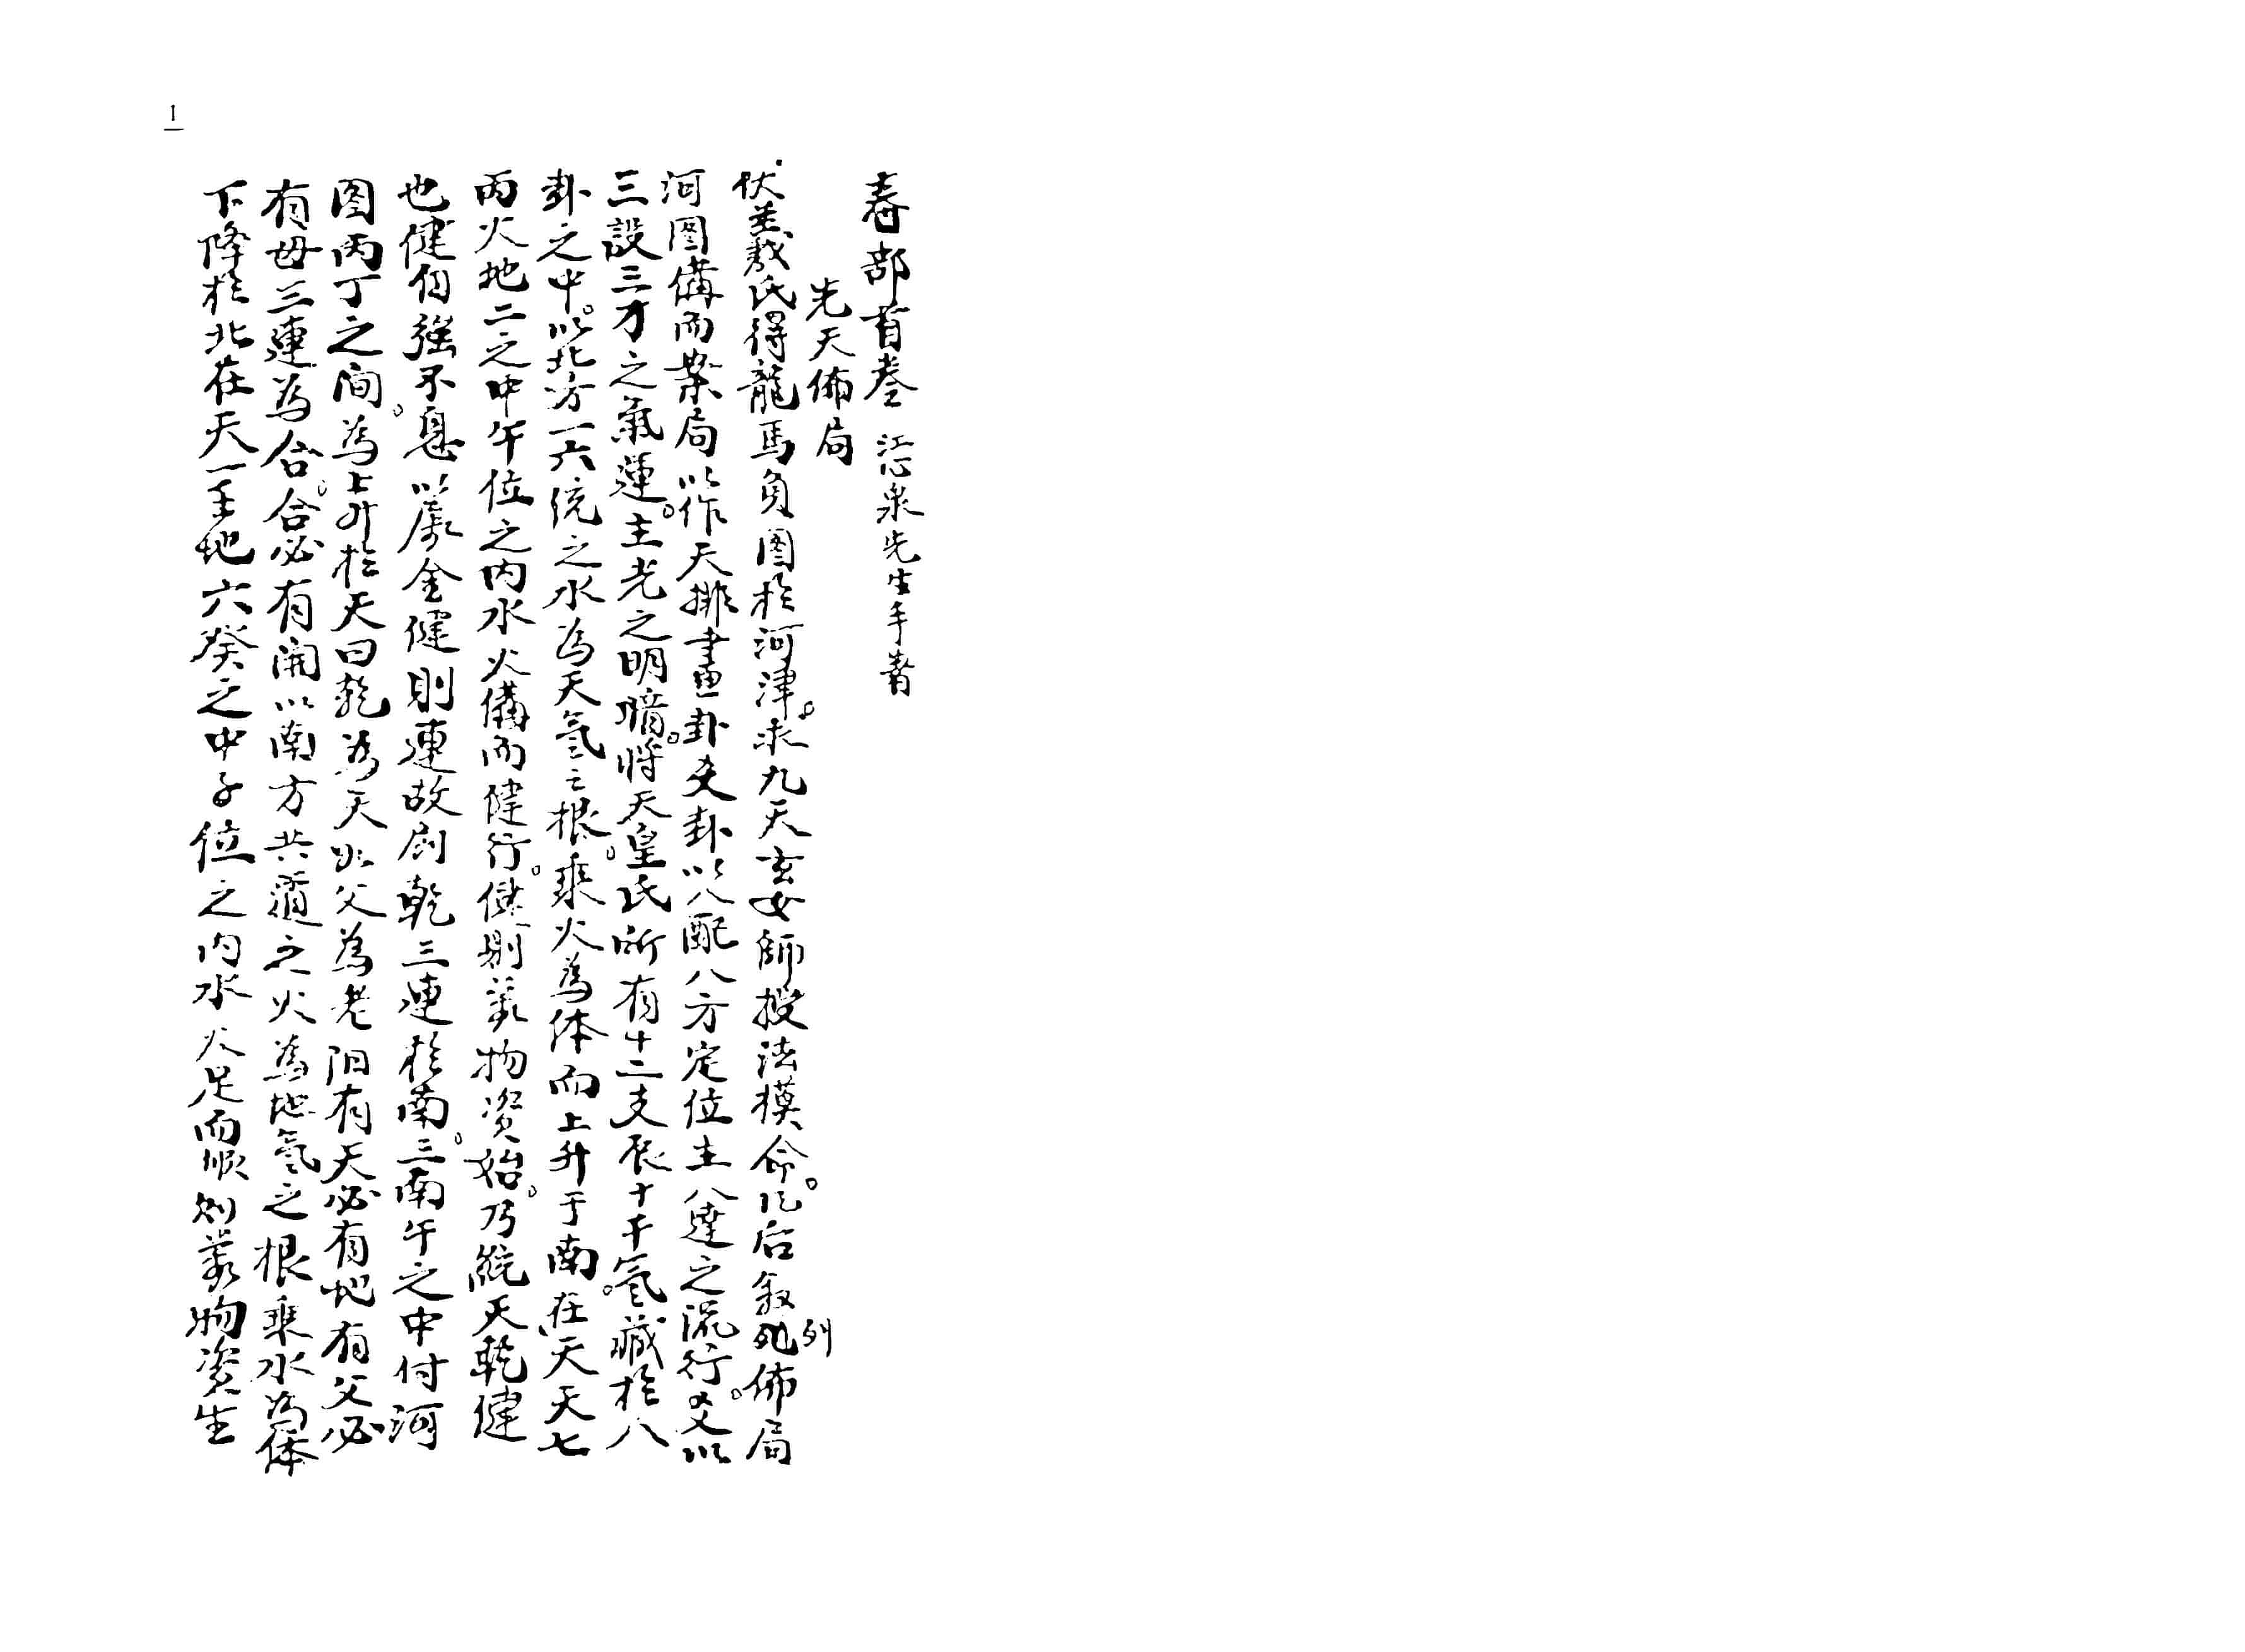 1
春部首卷 江心泉先生手著
先天佈局
伏羲氏得龍馬負圖於河津。求九天玄女師授法模命。后叙列佈局
河圖備而業局以作天排畫卦爻卦以八配八方定位主八達之流行。爻以
三設三才之氣運。主老之明暗。將天皇氏所有十二支辰十干氣藏於八
卦之中。以北方一六统之水為天氣之根。乘火為体而上升于南。在天天七
丙火地二之中午位之内水火備而健行。健則萬物资始。乃統天乾健
也健自强不息。以属金健則連故刻乾三連於南。三南午之中付河
图丙丁之间。為上升於天曰乾為天以父為老阳有天必有地有父必
有母三連為合。合必有開以南方共道之火為地氣之根乘水為体
下降於北在天一壬地六癸之中子位之内水火足而順则萬物资生